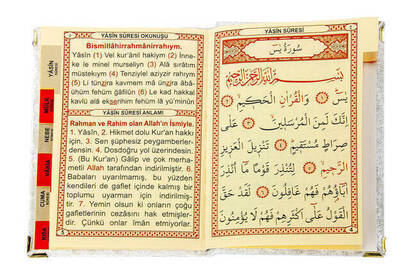 YÂSİN SÛRESİ OKUNUŞU
Bismillâhirrahmânirrahıym.
Yâsîn (1) Vel kur'ânil hakiym (2) İnne-
ke le minel murseliyn (3) Alâ sırâtım
müstekıym (4) Tenziylel aziyzir rahıym
(5) Li tünzira
ühüm fehüm ğâfilûn (6) Le kad hakkal
kavlü alâ ekserihim fehüm lâ yü'minûn
YÂSİN SÛRESİ ANLAMI
Rahman ve Rahim olan Allah'ın İsmiyle.
1. Yâsîn, 2. Hikmet dolu Kur'an hakkı
için, 3. Sen şüphesiz peygamberler-
densin. 4. Dosdoğru yol üzerindesin.
5. (Bu Kur'an) Gâlip ve çok merha-
metli Allah tarafından indirilmiştir. 6.
Babaları uyarılmamış, bu yüzden
kendileri de gaflet içinde kalmış bir
toplumu uyarman için indirilmiş-
tir. 7. Yemin olsun ki onların çoğu
gafletlerinin cezasını hak etmişler-
dir. Çünkü onlar iman etmiyorlar.
5
YÂSİN
SÛRESİ
MÜLK
NEBE
VÂKIA
CUMA
YÂSİN SÛRESİ
سُورَةُ يٰسٓ
بِسْمِ اللّٰهِ الرَّحْمٰنِ الرَّحِيمِ
يٰسٓ ۝ وَالْقُرْاٰنِ الْحَكِيمِ ۝
اِنَّكَ لَمِنَ الْمُرْسَلِينَ ۝ عَلٰى
صِرَاطٍ مُسْتَقِيمٍ ۝ تَنْزِيلَ الْعَزِيزِ
الرَّحِيمِ ۝ لِتُنْذِرَ قَوْمًا مَٓا اُنْذِرَ
اٰبَٓاؤُهُمْ فَهُمْ غَافِلُونَ ۝ لَقَدْ حَقَّ
الْقَوْلُ عَلٰٓى اَكْثَرِهِمْ فَهُمْ لَا يُؤْمِنُونَ
4